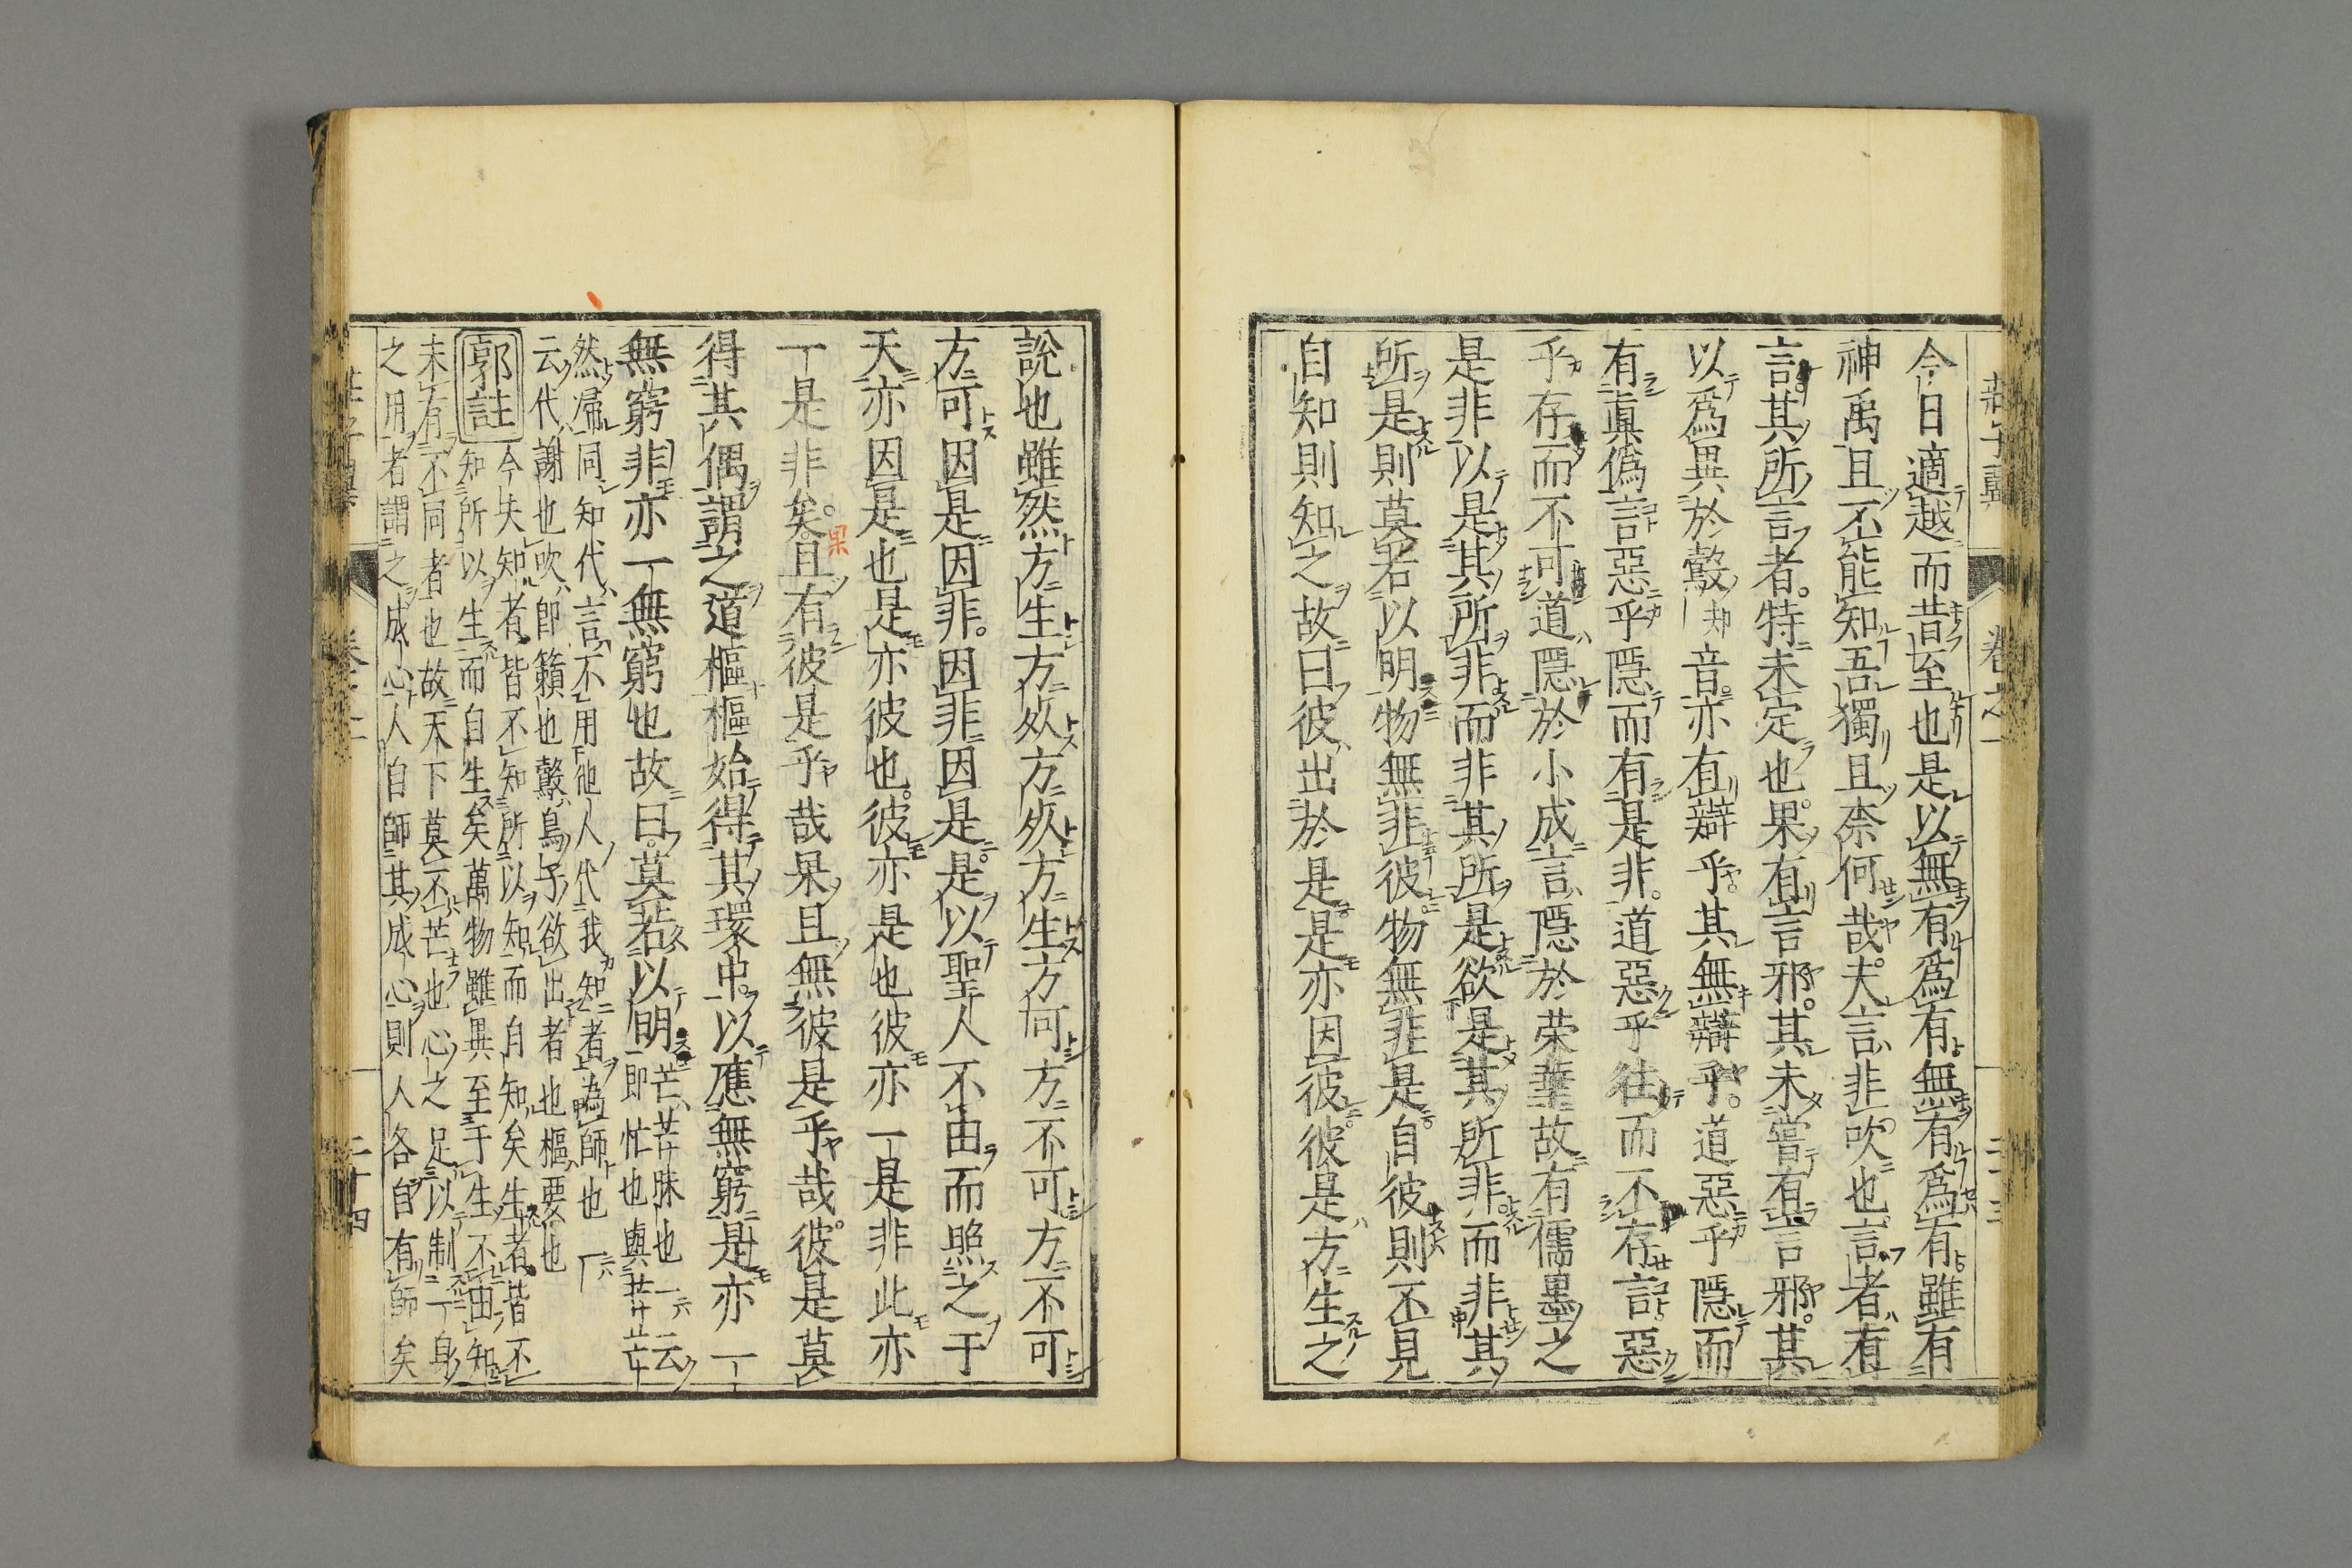 今日適越而昔至也是以無有爲有無有爲有雖有
神禹且不能知吾獨且柰何哉夫言非吹也言者有
言其所言者特未定也果有言邪其未嘗有言邪其
以爲異於鷇知音亦有辯乎其無辯乎道惡乎隱而
有眞僞言惡乎隱而有是非道惡乎往而不存言惡
乎存而不可道隱於小成言隱於荣華故有儒墨之
是非以是其所非而非其所是欲是其所非而非其
所是則莫若以明物無非彼物無非是自彼則不見
自知則知之故曰彼出於是是亦因彼彼是方生之
說也雖然方生方死方死方生方可方不可方不可
方可因是因非因非因是是以聖人不由而照之于
天亦因是也是亦彼也彼亦是也彼亦一是非此亦
一是非矣果且有彼是乎哉果且無彼是乎哉彼是莫
得其偶謂之道樞樞始得其環中以應無窮是亦一
無窮非亦一無窮也故曰莫若以明芒芒昧也一云
即忙也與芒芒
然歸同知代言不用他人代我知者爲師也一
云代謝也吹即籟也鷇鳥子欲出者也樞要也
郭註
今夫知者皆不知所以知而自知矣生者皆不
知所以生而自生矣萬物雖異至于生不由知
未有不同者也故天下莫不芒也心之足以制一身
之用者謂之成心人自師其成心則人各自有師矣
卷之一
二十四